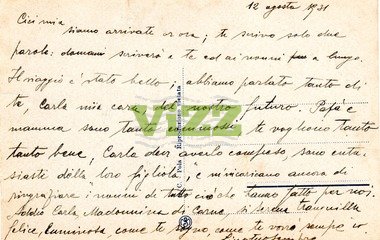 12 agosto 1931
Cicì mia
siamo arrivate or ora; ti scrivo solo due
parole: domani scriverò a te ed ai nonni a lungo.
Il viaggio è stato bello, abbiamo parlato tanto di
te, Carla mia cara del nostro futuro. Papà e
mamma sono tanto commossi, ti vogliono tanto
tanto bene; Carla deve averlo compreso, sono entu
siaste della loro figliola, e m'incaricano ancora di
ringraziare i nonni di tutto ciò che hanno fatto per noi.
Carla, Madonnina di tranquilla
felice, luminosa come ti sogno, come ti vorrò sempre
VIZZ
Riproduzione vietata